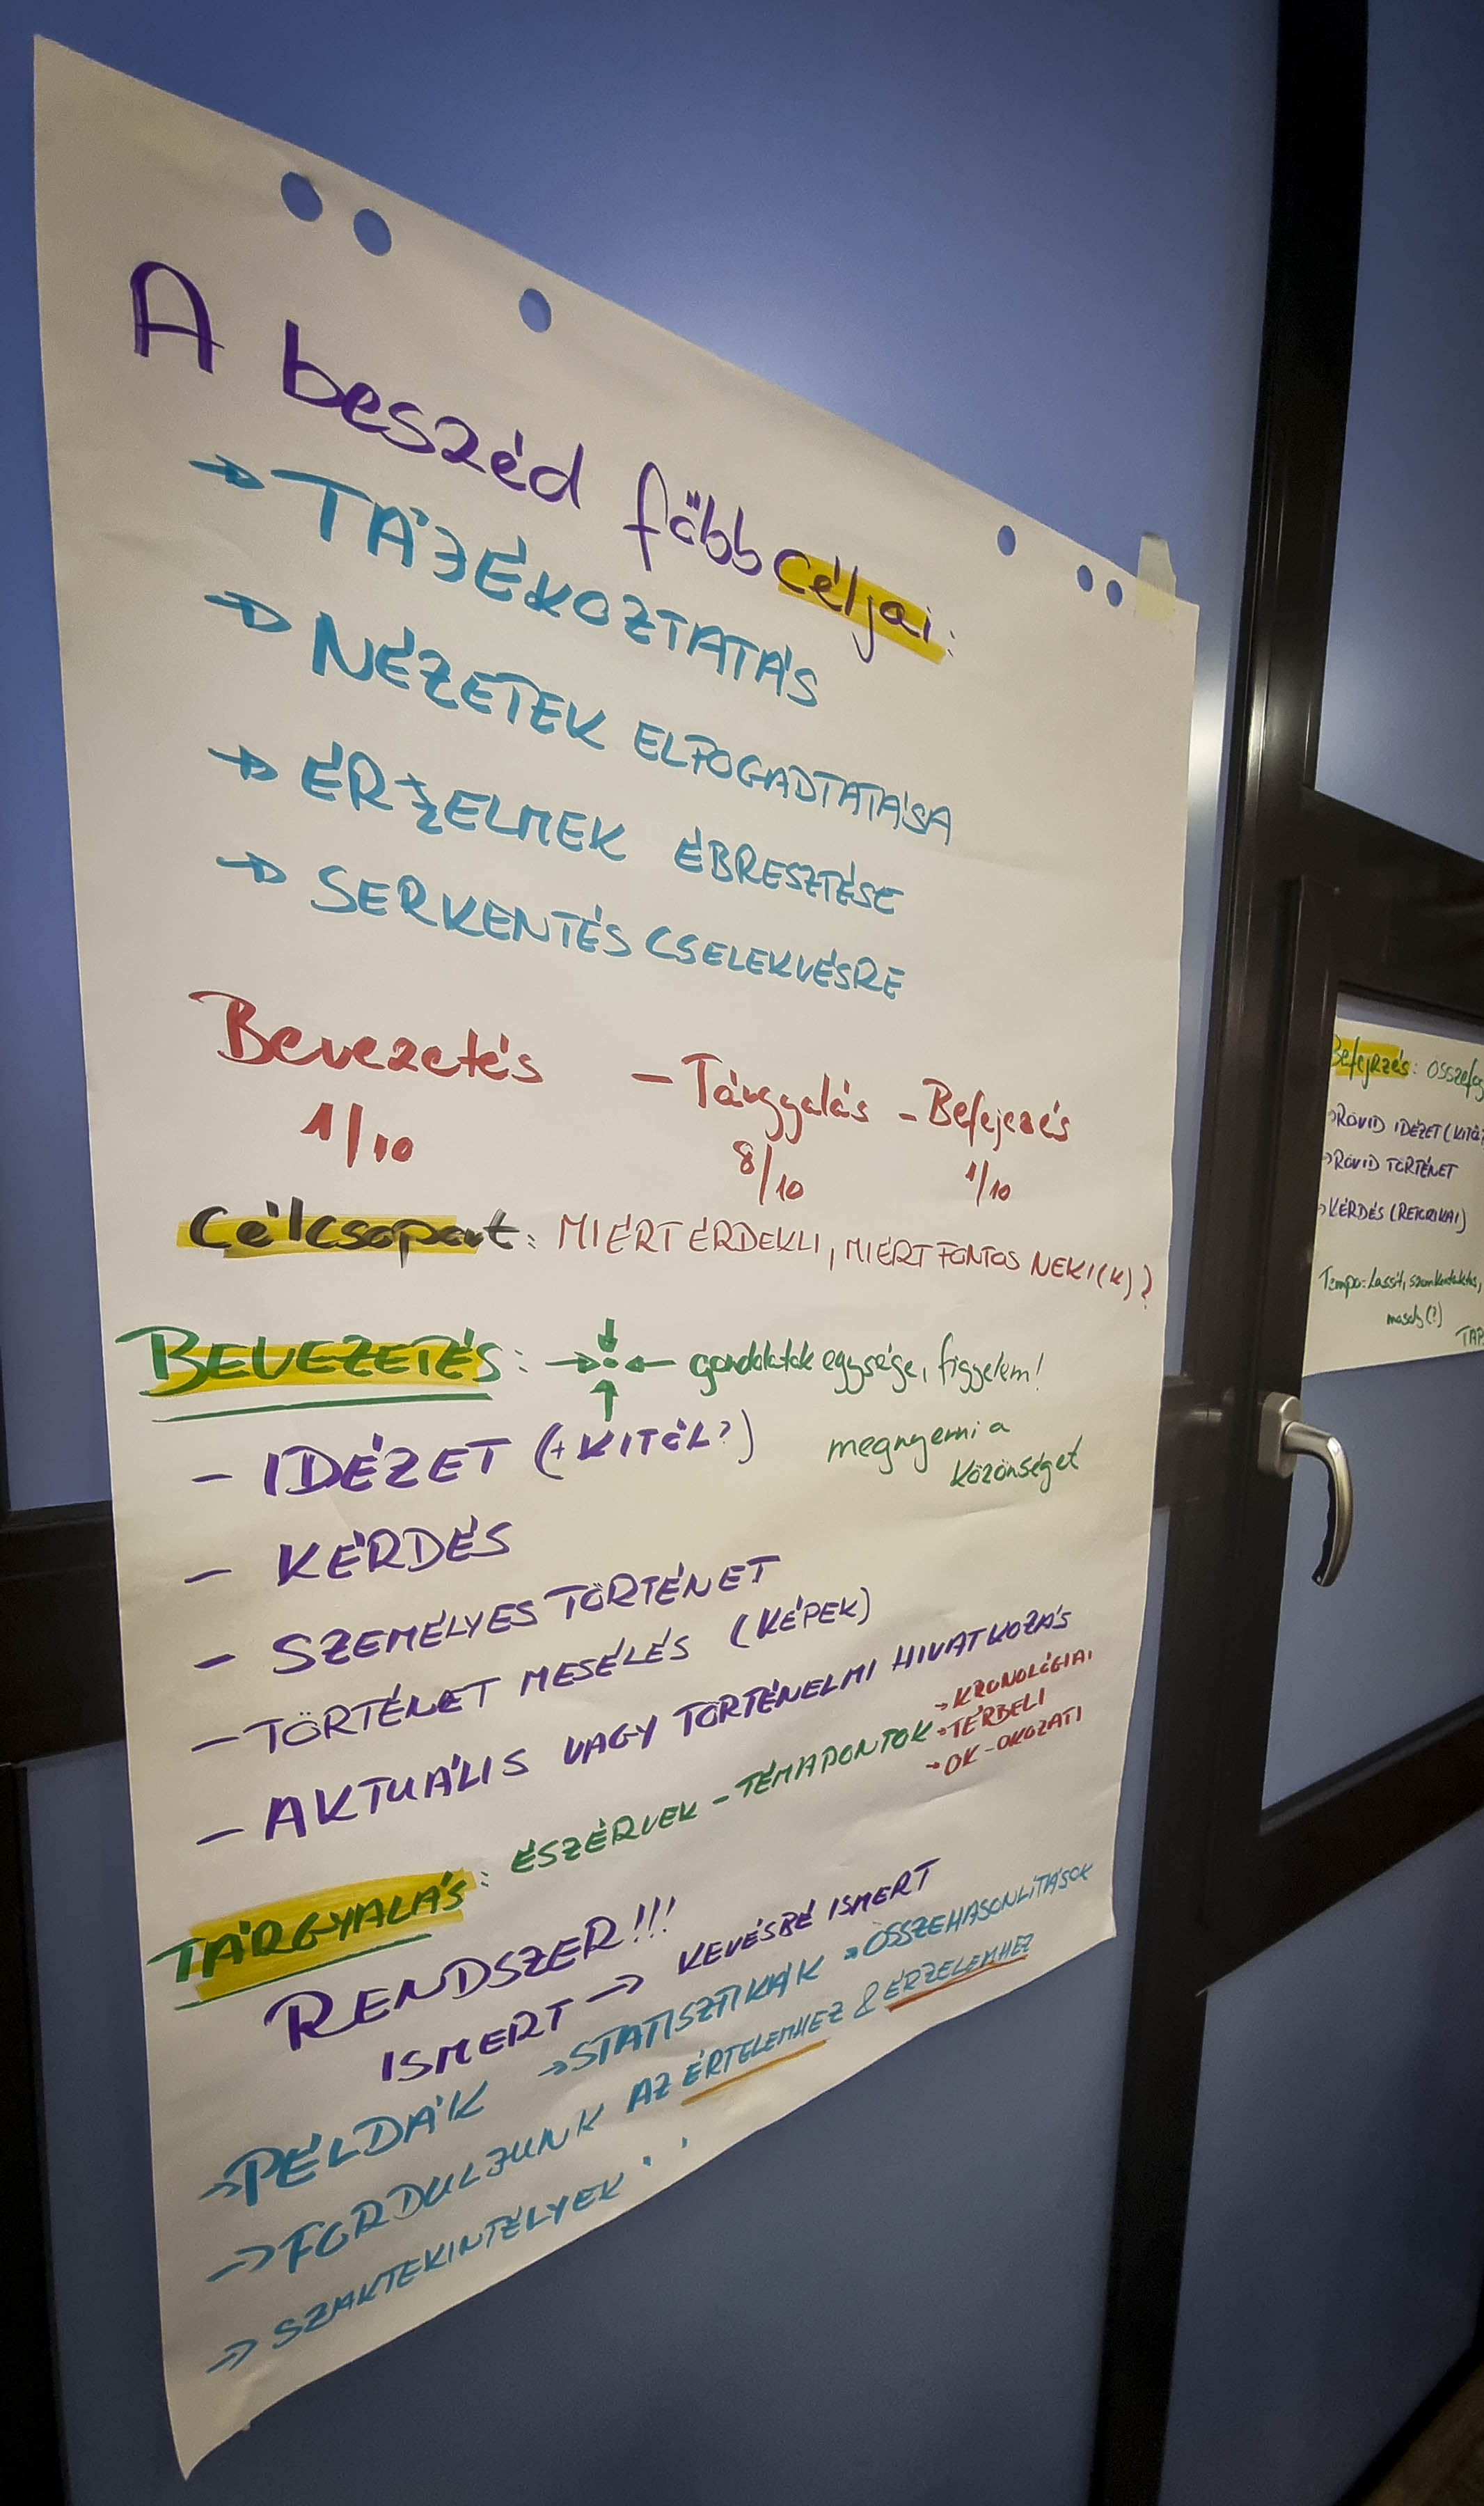 A beszéd főbb céljai:
→ TÁJÉKOZTATÁS
→ NÉZETEK ELFOGADTATÁSA
→ ÉRZELMEK ÉBRESZTÉSE
→ SERKENTÉS CSELEKVÉSRE
Bevezetés – Tárgyalás – Befejezés
1/10 8/10 1/10
Célcsoport: MIÉRT ÉRDEKLI, MIÉRT FONTOS NEKI(K)?
BEVEZETÉS: gondolatok egysége, figyelem!
– IDÉZET (+KITŐL?) megnyerni a
közönséget
– KÉRDÉS
– SZEMÉLYES TÖRTÉNET
– TÖRTÉNET MESÉLÉS (KÉPEK)
– AKTUÁLIS VAGY TÖRTÉNELMI HIVATKOZÁS
TÁRGYALÁS: ÉSZÉRVEK – TÉMAPONTOK → KRONOLÓGIAI
→ TÉRBELI
→ OK-OKOZATI
RENDSZER!!!
ISMERT → KEVÉSBÉ ISMERT
→ PÉLDÁK → STATISZTIKÁK → ÖSSZEHASONLÍTÁSOK
→ FORDULJUNK AZ ÉRTELEMHEZ & ÉRZELEMHEZ
→ SZAKTEKINTÉLYEK
Befejezés: összefog
→ RÖVID IDÉZET (KITŐ
→ RÖVID TÖRTÉNET
→ KÉRDÉS (RETORIKAI)
Tempo: Lassít, szemkontaktus,
mosoly(!)
TAP